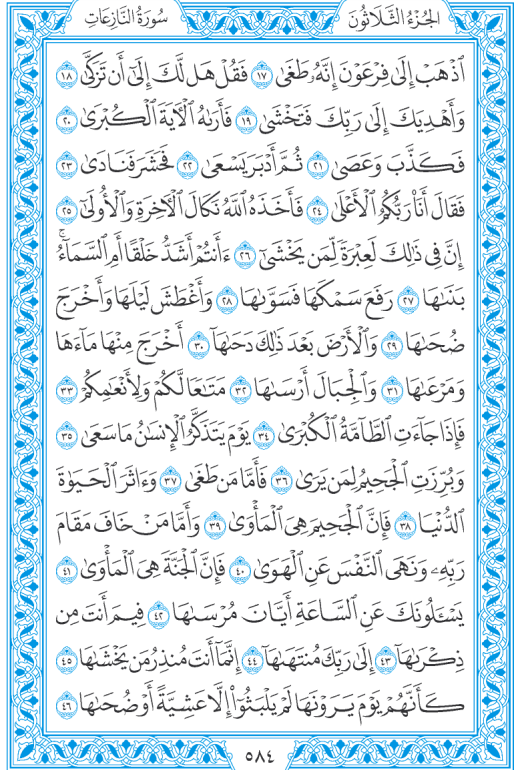 سُورَةُ النَّازِعَاتِ الجُزْءُ الثَّلَاثُونَ
ٱذۡهَبۡ إِلَىٰ فِرۡعَوۡنَ إِنَّهُۥ طَغَىٰ ١٧ فَقُلۡ هَل لَّكَ إِلَىٰٓ أَن تَزَكَّىٰ ١٨
وَأَهۡدِيَكَ إِلَىٰ رَبِّكَ فَتَخۡشَىٰ ١٩ فَأَرَىٰهُ ٱلۡأٓيَةَ ٱلۡكُبۡرَىٰ ٢٠
فَكَذَّبَ وَعَصَىٰ ٢١ ثُمَّ أَدۡبَرَ يَسۡعَىٰ ٢٢ فَحَشَرَ فَنَادَىٰ ٢٣
فَقَالَ أَنَا۠ رَبُّكُمُ ٱلۡأَعۡلَىٰ ٢٤ فَأَخَذَهُ ٱللَّهُ نَكَالَ ٱلۡأٓخِرَةِ وَٱلۡأُولَىٰٓ ٢٥
إِنَّ فِي ذَٰلِكَ لَعِبۡرَةٗ لِّمَن يَخۡشَىٰٓ ٢٦ ءَأَنتُمۡ أَشَدُّ خَلۡقًا أَمِ ٱلسَّمَآءُۚ
بَنَىٰهَا ٢٧ رَفَعَ سَمۡكَهَا فَسَوَّىٰهَا ٢٨ وَأَغۡطَشَ لَيۡلَهَا وَأَخۡرَجَ
ضُحَىٰهَا ٢٩ وَٱلۡأَرۡضَ بَعۡدَ ذَٰلِكَ دَحَىٰهَآ ٣٠ أَخۡرَجَ مِنۡهَا مَآءَهَا
وَمَرۡعَىٰهَا ٣١ وَٱلۡجِبَالَ أَرۡسَىٰهَا ٣٢ مَتَٰعٗا لَّكُمۡ وَلِأَنۡعَٰمِكُمۡ ٣٣
فَإِذَا جَآءَتِ ٱلطَّآمَّةُ ٱلۡكُبۡرَىٰ ٣٤ يَوۡمَ يَتَذَكَّرُ ٱلۡإِنسَٰنُ مَا سَعَىٰ ٣٥
وَبُرِّزَتِ ٱلۡجَحِيمُ لِمَن يَرَىٰ ٣٦ فَأَمَّا مَن طَغَىٰ ٣٧ وَءَاثَرَ ٱلۡحَيَوٰةَ
ٱلدُّنۡيَا ٣٨ فَإِنَّ ٱلۡجَحِيمَ هِيَ ٱلۡمَأۡوَىٰ ٣٩ وَأَمَّا مَنۡ خَافَ مَقَامَ
رَبِّهِۦ وَنَهَى ٱلنَّفۡسَ عَنِ ٱلۡهَوَىٰ ٤٠ فَإِنَّ ٱلۡجَنَّةَ هِيَ ٱلۡمَأۡوَىٰ ٤١
يَسۡـَٔلُونَكَ عَنِ ٱلسَّاعَةِ أَيَّانَ مُرۡسَىٰهَا ٤٢ فِيمَ أَنتَ مِن
ذِكۡرَىٰهَآ ٤٣ إِلَىٰ رَبِّكَ مُنتَهَىٰهَآ ٤٤ إِنَّمَآ أَنتَ مُنذِرُ مَن يَخۡشَىٰهَا ٤٥
كَأَنَّهُمۡ يَوۡمَ يَرَوۡنَهَا لَمۡ يَلۡبَثُوٓاْ إِلَّا عَشِيَّةً أَوۡ ضُحَىٰهَا ٤٦
٥٨٤